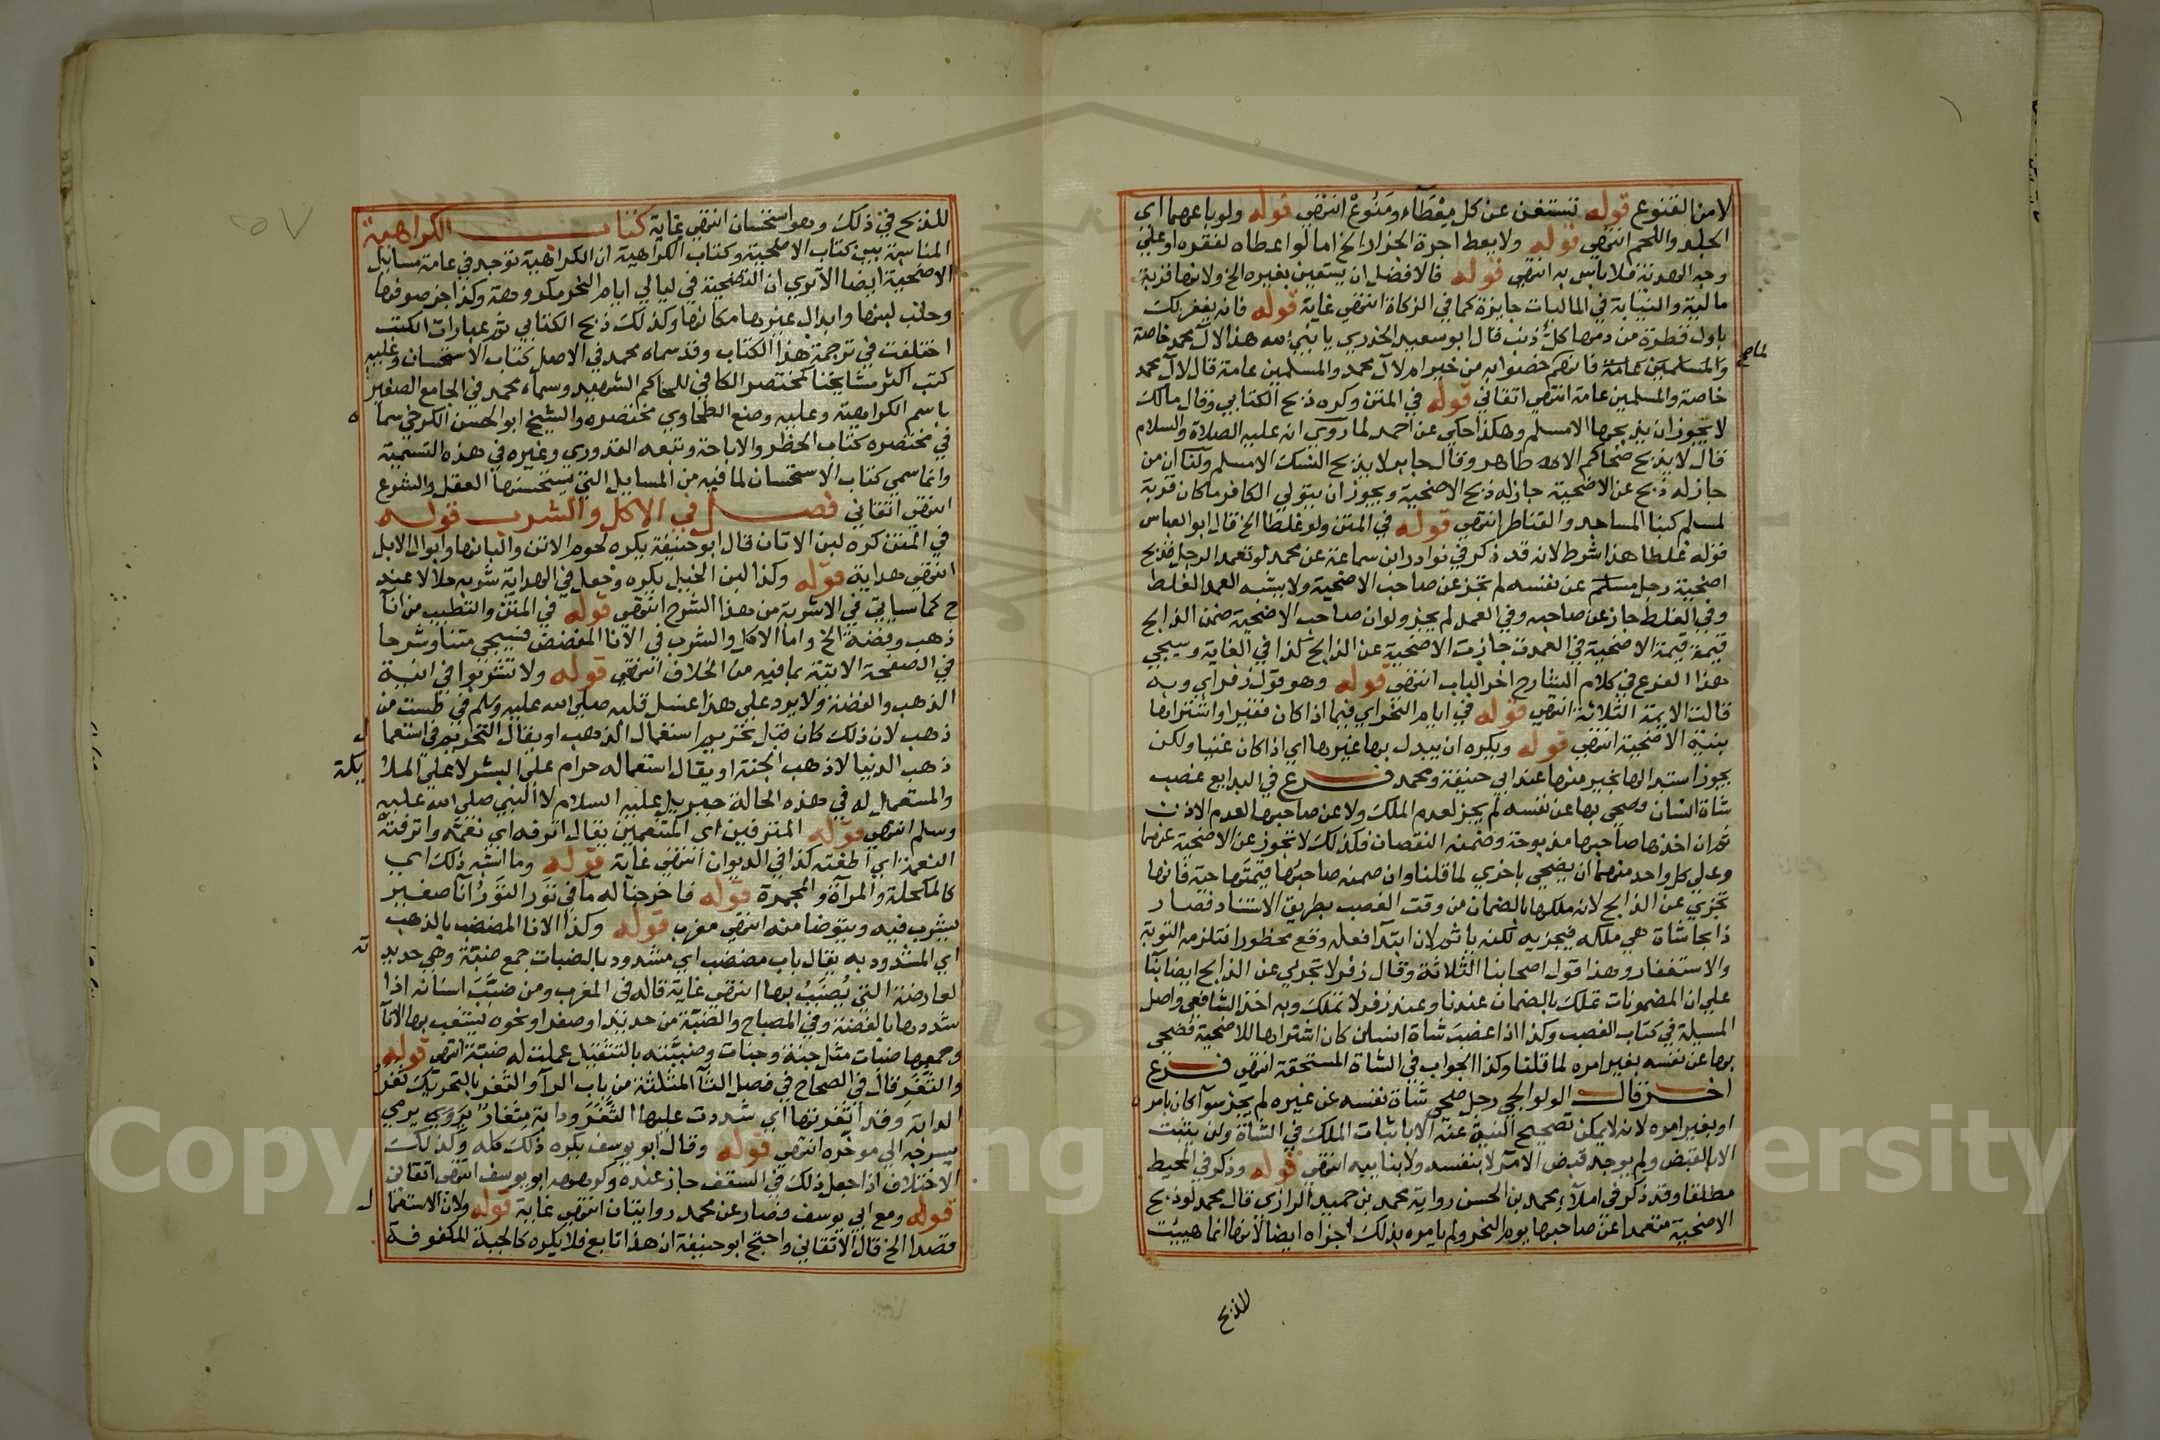 لا من القنوع قوله تستغن عن كل معطاء ومنوع انتهى قوله ولو باعهما اي
الجلد واللحم انتهى قوله ولا يعط اجرة الجزار الخ اما لو اعطاه لفقره او على
وجه الهدية فلا باس به انتهى قوله فالافضل ان يستعين بغيره الخ ولانها قربة
مالية والنيابة في الماليات جايزة كما في الزكاة انتهى غاية قوله فانه يغفر لك
باول قطرة من دمها كل ذنب قال ابو سعيد الخدري يا نبي الله هذا لآل محمد خاصة
والمسلمين عامة فانهم خصوا به من خير ام لآل محمد والمسلمين عامة قال لآل محمد
خاصة والمسلمين عامة انتهى اتقاني قوله في المتن وكره ذبح الكتابي وقال مالك
لا يجوز ان يذبحها الا مسلم وهكذا حكي عن احمد لما روي انه عليه الصلاة والسلام
قال لا يذبح ضحاكم الا طاهر وقال جابر لا يذبح النسك الا مسلم ولنا ان من
جاز له ذبح عن الاضحية جاز له ذبح الاضحية ويجوز ان يتولي الكافر ما كان قربة
لمسلم كبنا المساجد والقناطر انتهى قوله في المتن ولو غلطا الخ قال ابو العباس
قوله غلطا هذا شرط لانه قد ذكر في نوادر ابن سماعة عن محمد لو تعمد الرجل فذبح
اضحية رجل مسلم عن نفسه لم تجز عن صاحب الاضحية ولا يشبه العمد الغلط
وفي الغلط جاز عن صاحبه وفي العمد لم يجز ولو ان صاحب الاضحية ضمن الذابح
قيمة الاضحية في العمد جازت الاضحية عن الذابح كذا في الغاية وسيجي
هذا الفرع في كلام الشارح اخر الباب انتهى قوله وهو قول زفر اي وبه
قالت الايمة الثلاثة انتهى قوله في ايام النحر اي فيما اذا كان فقيرا واشتراها
بنية الاضحية انتهى قوله ويكره ان يبدل بها غيرها اي اذا كان غنيا ولكن
يجوز استبدالها بخير منها عند ابي حنيفة ومحمد فرع في البدايع غصب
شاة انسان وضحي بها عن نفسه لم يجز لعدم الملك ولا عن صاحبها لعدم الاذن
ثم ان اخذها صاحبها مذبوحة وضمنه النقصان فكذلك لا تجوز عن الاضحية عنهما
وعلي كل واحد منهما ان يضحي باخري لما قلنا وان ضمنه صاحبها قيمتها حية فانها
تجزي عن الذابح لانه ملكها بالضمان من وقت الغصب بطريق الاستناد فصار
ذابحا شاة هي ملكه فيجزيه لكنه ياثم لان ابتدا فعله وقع محظورا فتلزمه التوبة
والاستغفار وهذا قول اصحابنا الثلاثة وقال زفر لا تجزي عن الذابح ايضا بنا
علي ان المضمونات تملك بالضمان عندنا وعند زفر لا تملك وبه اخذ الشافعي واصل
المسيلة في كتاب الغصب وكذا اذا غصب شاة انسان كان اشتراها للاضحية فضحي
بها عن نفسه بغير امره لما قلنا وكذا الجواب في الشاة المستحقة انتهى فرع
اخر قال الولوالجي رجل ضحي شاة نفسه عن غيره لم يجز سوآ كان بامره
او بغير امره لانه لا يمكن تصحيح النية عنه الا باثبات الملك في الشاة ولن يثبت
الا بالقبض ولم يوجد قبض الآمر لا بنفسه ولا بنايبه انتهى قوله وذكر في المحيط
مطلقا وقد ذكر في املآء محمد بن الحسن رواية محمد بن حميد الرازي قال محمد لو ذبح
الاضحية متعمدا عن صاحبها يوم النحر ولم يامره بذلك اجزاه ايضا لانها انما هييت
للذبح
للذبح في ذلك وهو استحسان انتهى غاية كتاب الكراهية
المناسبة بين كتاب الاضحية وكتاب الكراهية ان الكراهية توجد في عامة مسايل
الاضحية ايضا الا تري ان التضحية في ليالي ايام النحر مكروهة وكذا جز صوفها
وحلب لبنها وابدال غيرها مكانها وكذلك ذبح الكتابي ثم عبارات الكتب
اختلفت في ترجمة هذا الكتاب وقد سماه محمد في الاصل كتاب الاستحسان وعليه
كتب اكثر مشايخنا كمختصر الكافي للحاكم الشهيد وسماه محمد في الجامع الصغير
باسم الكراهية وعليه وضع الطحاوي مختصره والشيخ ابو الحسن الكرخي سماه
في مختصره كتاب الحظر والاباحة وتبعه القدوري وغيره في هذه التسمية
وانما سمي كتاب الاستحسان لما فيه من المسايل التي يستحسنها العقل والشرع
انتهى اتقاني فصل في الاكل والشرب قوله
في المتن كره لبن الاتان قال ابو حنيفة يكره لحوم الاتن والبانها وابوال الابل
انتهى هداية قوله وكذا لبن الخيل يكره وجعل في الهداية شربه حلالا عند
ح كما سياتي في الاشربة من هذا الشرح انتهى قوله في المتن والتطيب من انآ
ذهب وفضة الخ واما الاكل والشرب في الانا المفضض فسيجي متنا وشرحا
في الصفحة الاتية بما فيه من الخلاف انتهى قوله ولا تشربوا في انية
الذهب والفضة ولا يرد علي هذا غسل قلبه صلي الله عليه وسلم في طست من
ذهب لان ذلك كان قبل تحريم استعمال الذهب او يقال التحريم في استعمال
ذهب الدنيا لا ذهب الجنة او يقال استعماله حرام علي البشر لا علي الملايكة
والمستعمل له في هذه الحالة جبريل عليه السلام لا النبي صلي الله عليه
وسلم انتهى قوله المترفين اي المتنعمين يقال اترفه اي نعمه واترفته
النعمة اي اطغته كذا في الديوان انتهى غاية قوله وما اشبه ذلك اي
كالمكحلة والمرآة والمجمرة قوله فاخرجنا له مآ في تور التور انآ صغير
يشرب فيه ويتوضا منه انتهى مغرب قوله وكذا الانا المضبب بالذهب
اي المشدود به يقال باب مضبب اي مشدود بالضبات جمع ضبة وهي حديدته
العارضة التي يضبب بها انتهى غاية قاله في المغرب ومن ضبب اسنانه اذا
شدها بالفضة وفي المصباح والضبة من حديد او صفر او نحوه يشعب بها الانآ
وجمعها ضبات مثل جنة وجنات وضببته بالتثقيل عملت له ضبة انتهى قوله
والثفر قال في الصحاح في فصل الثآ المثلثة من باب الرآ والثفر بالتحريك ثفر
الدابة وقد اثفرتها اي شددت عليها الثفر ودابة مثفار يروي يرمي
بسرجه الي موخره انتهى قوله وقال ابو يوسف يكره ذلك كله وكذلك
الاختلاف اذا جعل ذلك في السقف جاز عنده وكرهه ابو يوسف انتهى اتقاني
قوله ومع ابي يوسف وصار عن محمد روايتان انتهى غاية قوله ولان الاستعمال
قصدا الخ قال الاتقاني واحتج ابو حنيفة ان هذا تابع فلا يكره كالجبة المكفوفة
Copy King University